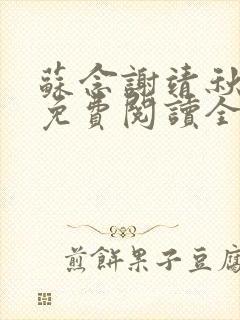 蘇念謝靖秋
免費閱讀全
煎餅果子豆腐